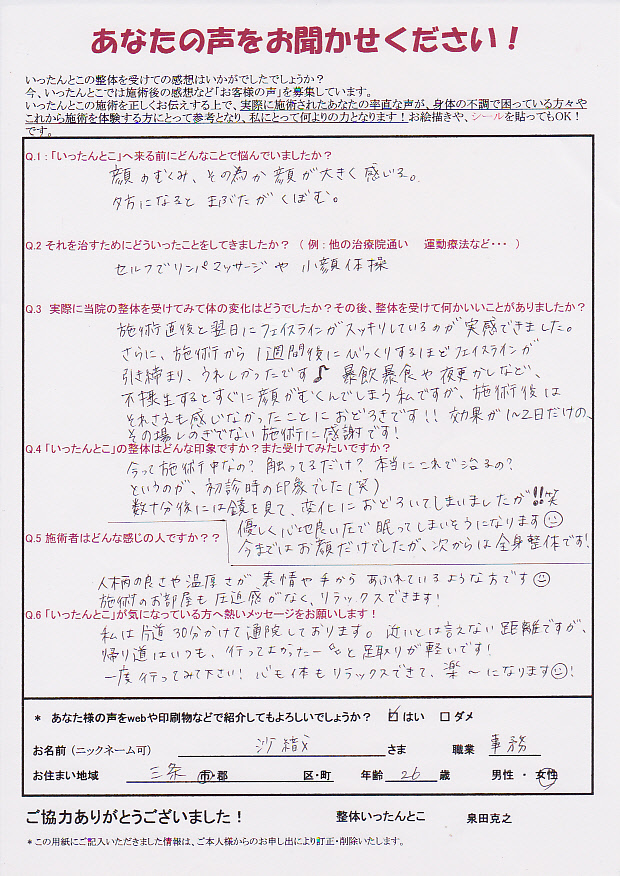 あなたの声をお聞かせください！
いったんとこの整体を受けての感想はいかがでしたでしょうか？
今、いったんとこでは施術後の感想など「お客様の声」を募集しています。
いったんとこの施術を正しくお伝えする上で、実際に施術されたあなたの率直な声が、身体の不調で困っている方々や
これから施術を体験する方にとって参考となり、私にとって何よりの力となります！お絵描きや、シールを貼ってもOK！
です。
Q.1：「いったんとこ」へ来る前にどんなことで悩んでいましたか？
顔のむくみ、その為か顔が大きく感じる。
夕方になると まぶたが くぼむ。
Q.2 それを治すためにどういったことをしてきましたか？（例：他の治療院通い 運動療法など・・・）
セルフでリンパマッサージや 小顔体操
Q.3 実際に当院の整体を受けてみて体の変化はどうでしたか？その後、整体を受けて何かいいことがありましたか？
施術直後と翌日にフェイスラインがスッキリしているのが実感できました。
さらに、施術から1週間後にびっくりするほどフェイスラインが
引き締まり、うれしかったです♪ 暴飲暴食や夜更かしなど、
不摂生するとすぐに顔がむくんでしまう私ですが、施術後は
それさえも感じなかったことにおどろきです!! 効果が1〜2日だけの、
その場しのぎでない施術に感謝です！
Q.4「いったんとこ」の整体はどんな印象ですか？また受けてみたいですか？
今って施術中なの？ 触ってるだけ？ 本当にこれで治るの？
というのが、初診時の印象でした（笑）
数十分後には鏡を見て、変化におどろいてしまいましたが!!笑
優しく心地良い圧で眠ってしまいそうになります☺
今まではお顔だけでしたが、次からは全身整体です！
Q.5 施術者はどんな感じの人ですか？？
人柄の良さや温厚さが 表情や手から あふれているような方です☺
施術のお部屋も圧迫感がなく、リラックスできます！
Q.6「いったんとこ」が気になっている方へ熱いメッセージをお願いします！
私は片道30分かけて通院しております。近いとは言えない距離ですが、
帰り道はいつも、行ってよかったー°。と足取りが軽いです！
一度行ってみて下さい！ 心も体もリラックスできて、楽〜になります☺！
＊ あなた様の声をwebや印刷物などで紹介してもよろしいでしょうか？ ☑ はい □ ダメ
お名前（ニックネーム可） 沙織 さま 職業 事務
お住まい地域 三条 市・郡 区・町 年齢 26 歳 男性・女性
ご協力ありがとうございました！ 整体いったんとこ 泉田克之
＊この用紙にご記入いただきました情報は、ご本人様からのお申し出により訂正・削除いたします。